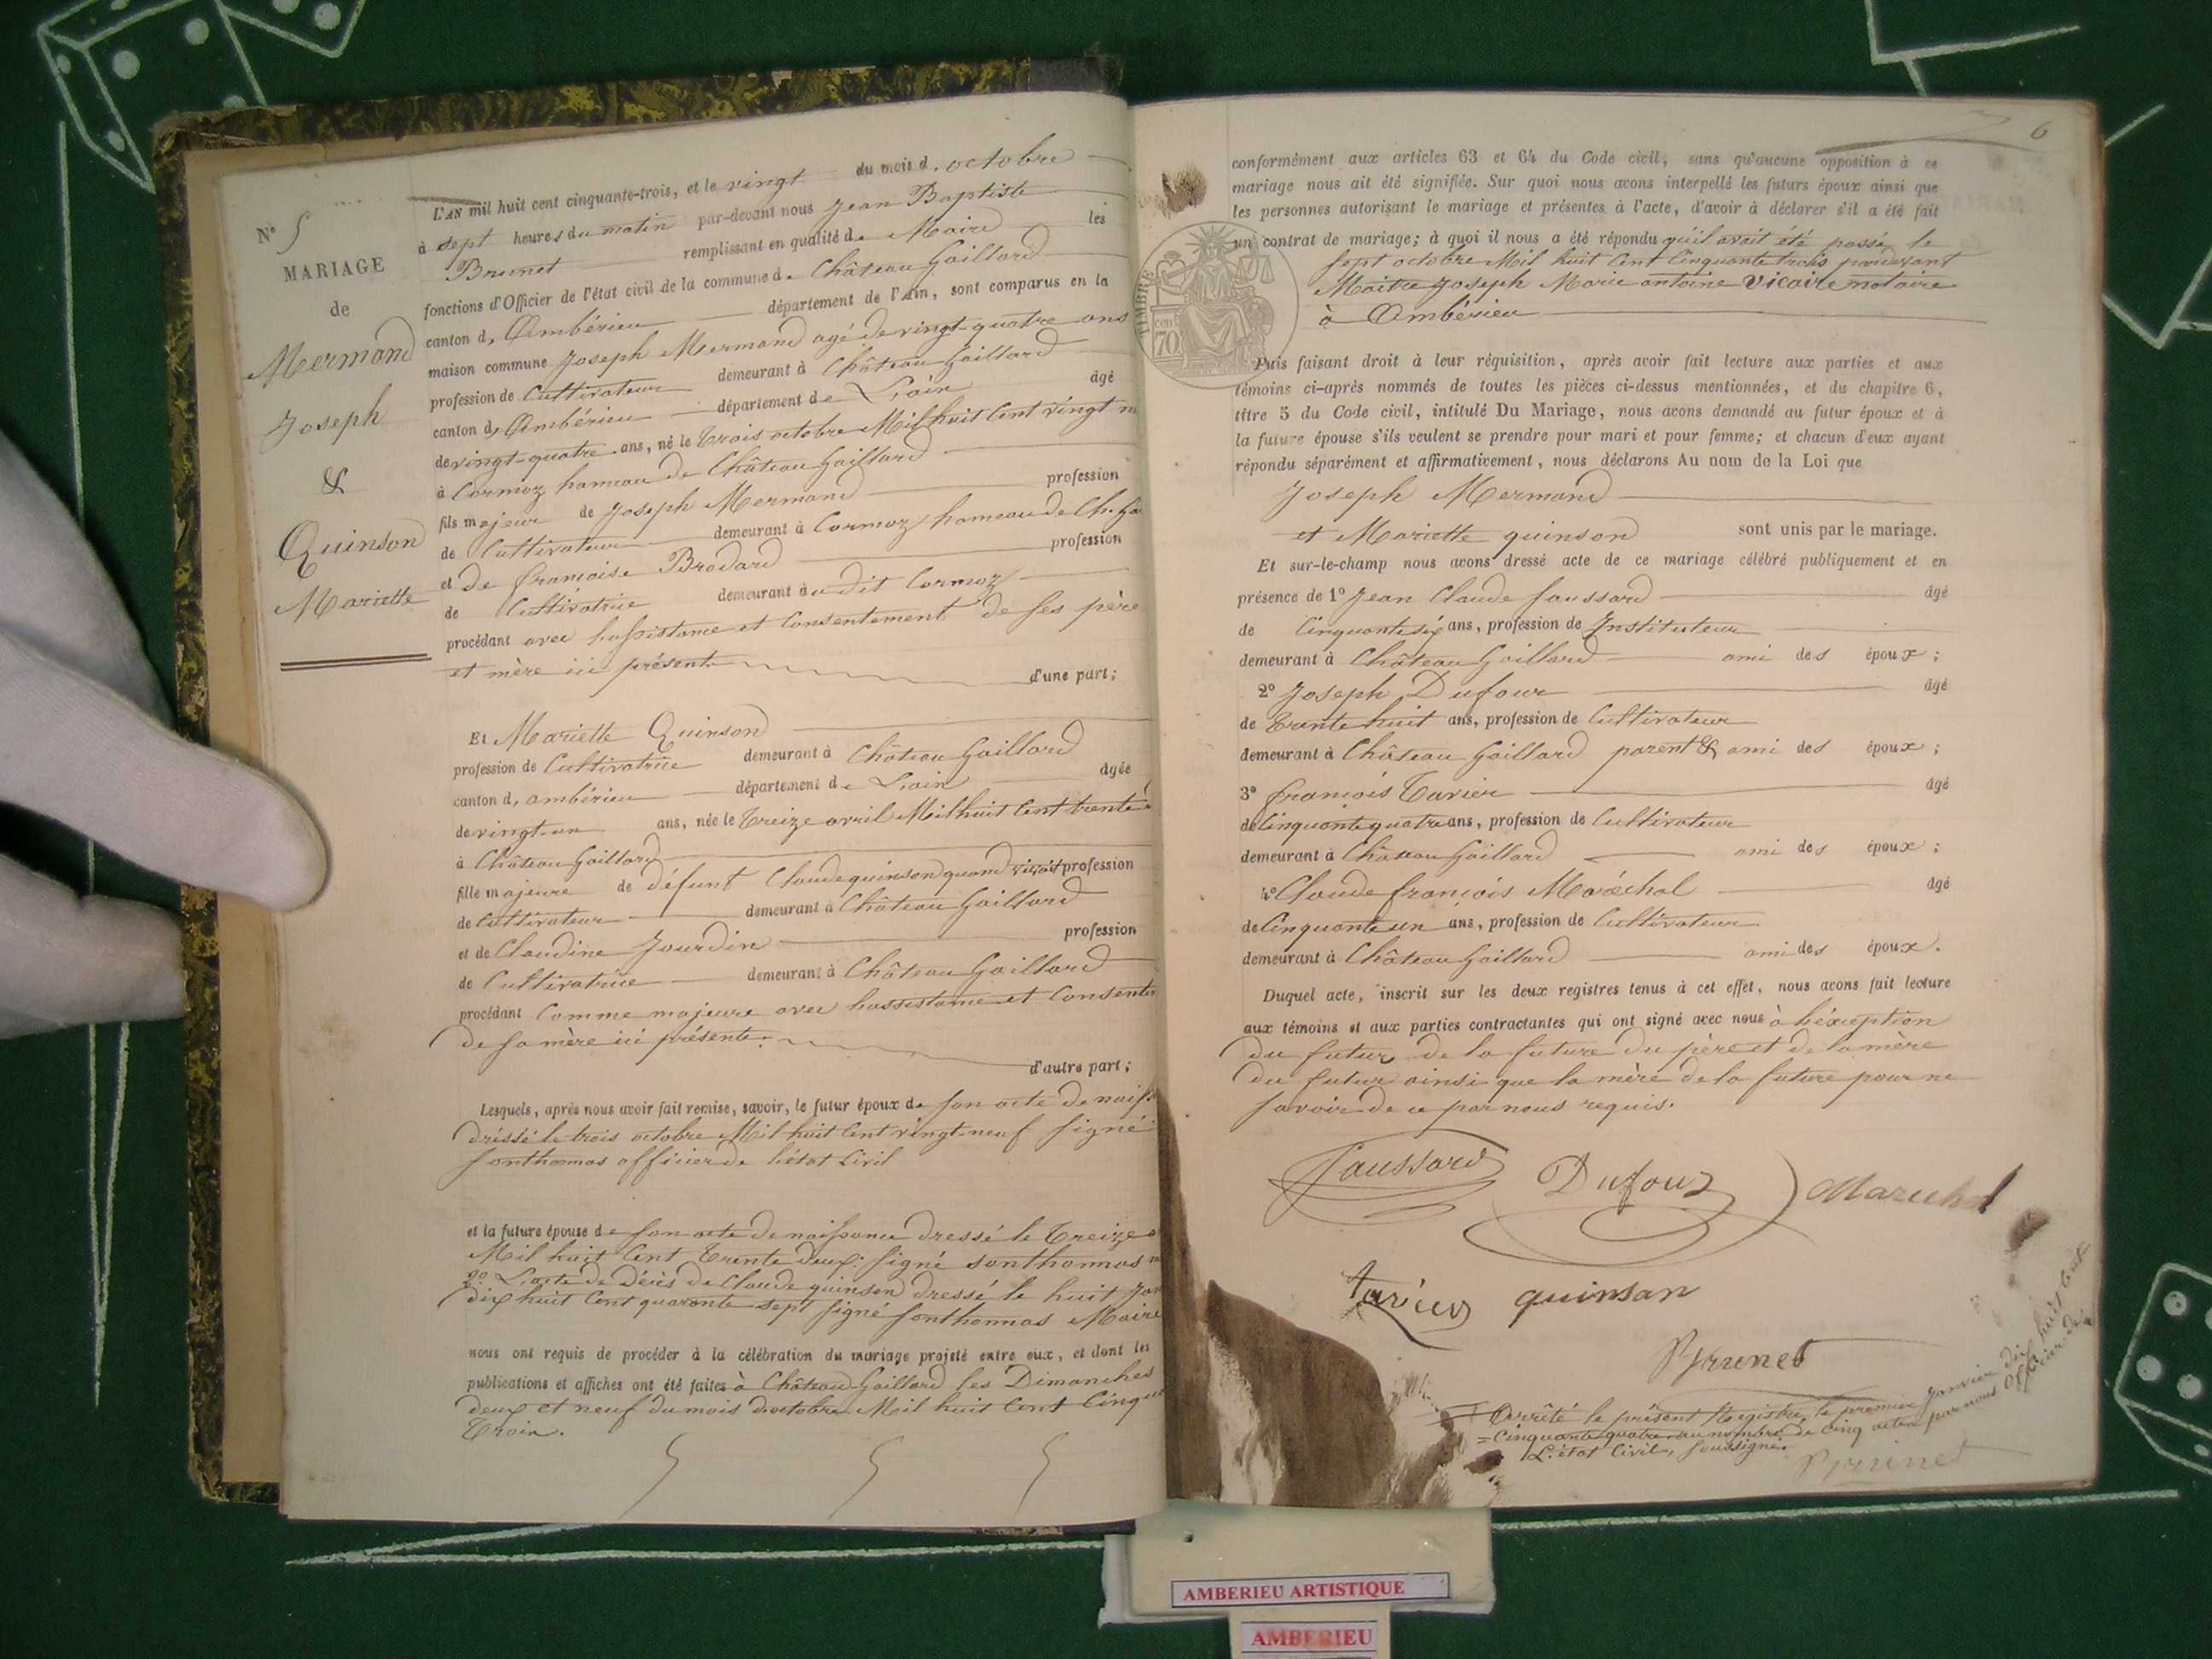 N° 5
MARIAGE
de
Mermand
Joseph
&
Quinson
Mariette
L'AN mil huit cent cinquante-trois, et le vingt du mois d'octobre
à sept heures du matin par-devant nous Jean Baptiste
Brunet remplissant en qualité de Maire les
fonctions d'Officier de l'état civil de la commune de Château Gaillard
canton d'Ambérieu département de l'Ain, sont comparus en la
maison commune Joseph Mermand agé de vingt-quatre ans
profession de Cultivateur demeurant à Château Gaillard
canton d'Ambérieu département de L'ain âgé
de vingt-quatre ans, né le trois octobre Mil huit Cent vingt
à Cormoz hameau de Château Gaillard
fils majeur de Joseph Mermand profession
de Cultivateur demeurant à Cormoz hameau de Ch. Ga
et de françoise Brodard profession
de Cultivatrice demeurant au dit Cormoz
procédant avec l'assistance et Consentement de ses père
et mère ici présent d'une part;
Et Mariette Quinson
profession de Cultivatrice demeurant à Château Gaillard
canton d'ambérieu département de L'ain âgée
de vingt-un ans, née le treize avril Mil huit Cent trente
à Château Gaillard
fille majeure de défunt Claude quinson quand vivait profession
de Cultivateur demeurant à Château Gaillard
et de Claudine Jourdin profession
de Cultivatrice demeurant à Château Gaillard
procédant Comme majeure avec l'assistance et Consente
de sa mère ici présente. d'autre part;
Lesquels, après nous avoir fait remise, savoir, le futur époux de son acte de naiss
dréssé le trois octobre Mil huit Cent vingt-neuf signé
sonthonnas officier de l'état Civil
et la future épouse de son acte de naissance dressé le treize
Mil huit Cent trente deux. signé sonthonnas
2° L'acte de décès de Claude quinson dressé le huit Jan
dix huit Cent quarante sept signé sonthonnas Maire
nous ont requis de procéder à la célébration du mariage projeté entre eux, et dont les
publications et affiches ont été faites à Château-Gaillard les Dimanches
deux et neuf du mois d'octobre Mil huit Cent Cinqua
trois.
6
conformément aux articles 63 et 64 du Code civil, sans qu'aucune opposition à ce
mariage nous ait été signifiée. Sur quoi nous avons interpellé les futurs époux ainsi que
les personnes autorisant le mariage et présentes à l'acte, d'avoir à déclarer s'il a été fait
un contrat de mariage; à quoi il nous a été répondu qu'il avait été passé le
sept octobre Mil huit Cent Cinquante trois pardevant
Maitre Joseph Marie antoine Vicaire notaire
à Ambérieu
TIMBRE
cen
70
Puis faisant droit à leur réquisition, après avoir fait lecture aux parties et aux
témoins ci-après nommés de toutes les pièces ci-dessus mentionnées, et du chapitre 6,
titre 5 du Code civil, intitulé Du Mariage, nous avons demandé au futur époux et à
la future épouse s'ils veulent se prendre pour mari et pour femme; et chacun d'eux ayant
répondu séparément et affirmativement, nous déclarons Au nom de la Loi que
Joseph Mermand
et Mariette quinson sont unis par le mariage.
Et sur-le-champ nous avons dressé acte de ce mariage célébré publiquement et en
présence de 1° Jean Claude faussard âgé
de Cinquante six ans, profession de Instituteur
demeurant à Château Gaillard ami des époux;
2° Joseph Dufour âgé
de trente huit ans, profession de Cultivateur
demeurant à Château Gaillard parent & ami des époux;
3° françois tavier âgé
de Cinquante quatre ans, profession de Cultivateur
demeurant à Château Gaillard ami des époux;
4° Claude françois Maréchal âgé
de Cinquante un ans, profession de Cultivateur
demeurant à Château Gaillard ami des époux.
Duquel acte, inscrit sur les deux registres tenus à cet effet, nous avons fait lecture
aux témoins et aux parties contractantes qui ont signé avec nous à l'éxception
du futur de la future du père et de la mère
du futur ainsi que la mère de la future pour ne
savoir de ce par nous requis.
Faussard Dufour Marechal
tavier quinson
Brunet
Arrêté le présent Registre le premier Janvier dix huit Cent
Cinquante quatre au nombre de cinq actes par nous officier de
L'état Civil, soussigné.
Brunet
AMBERIEU ARTISTIQUE
AMBERIEU